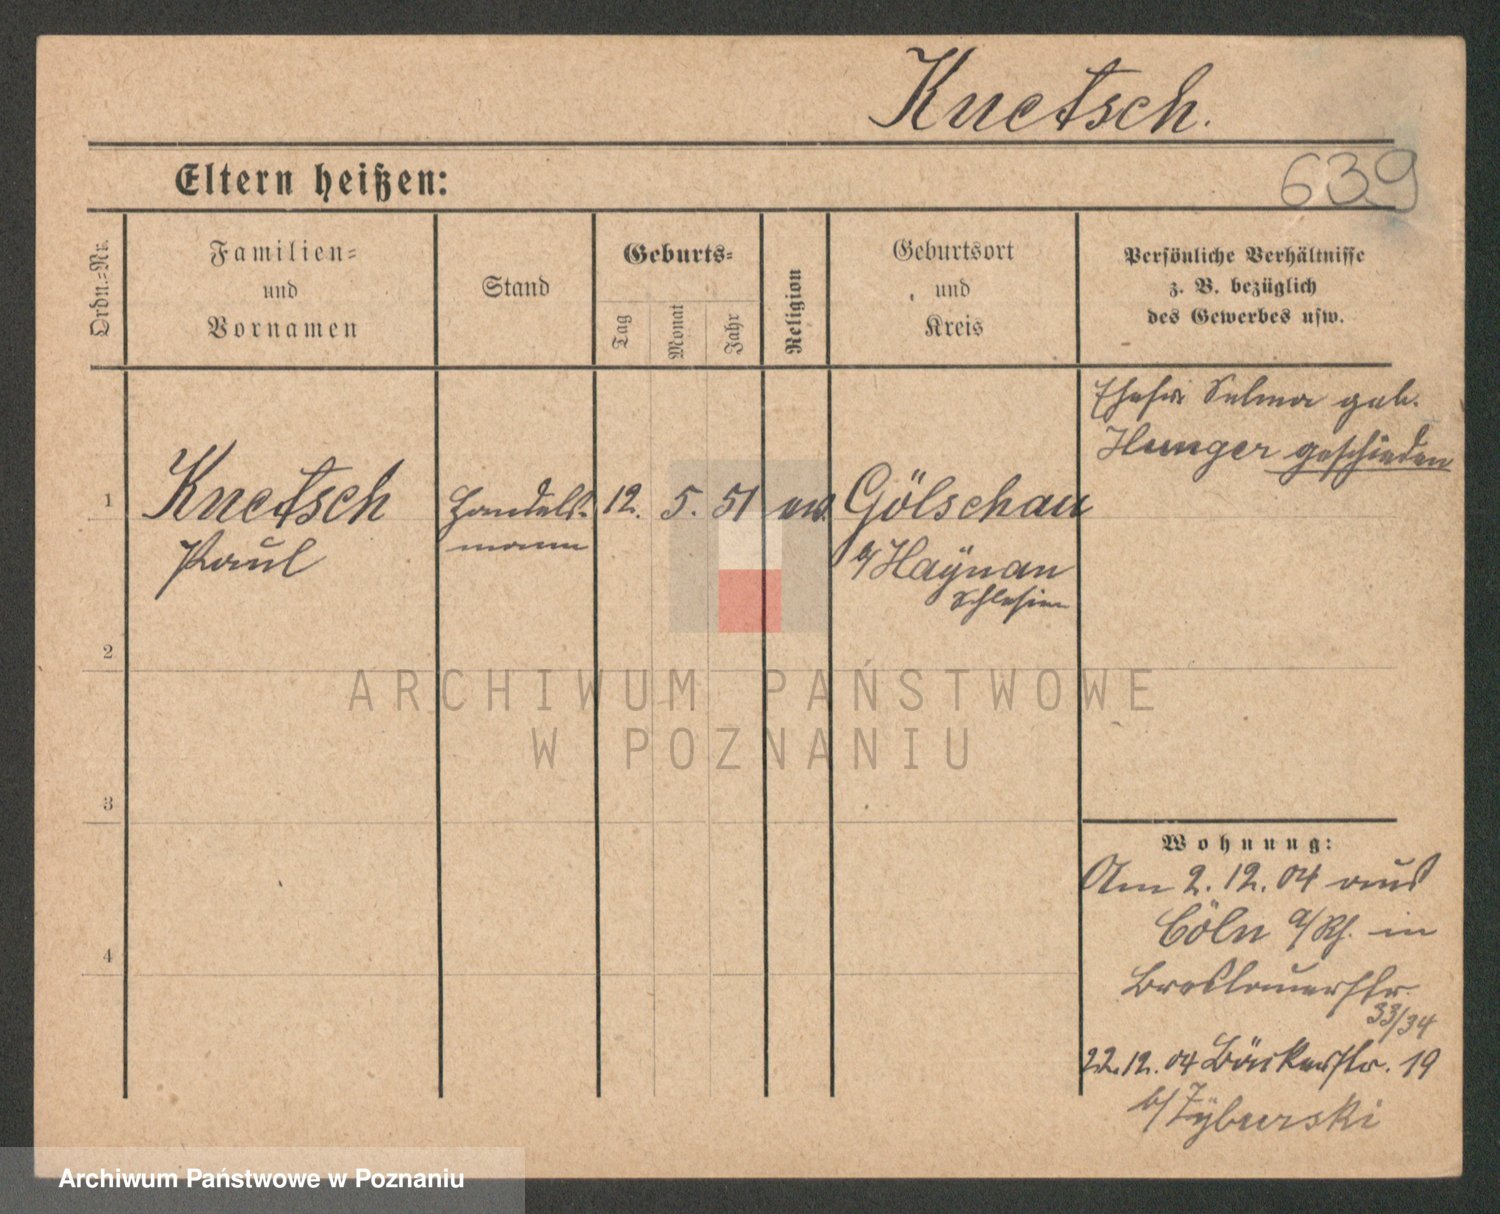 Knetsch.
639
Eltern heißen:
Ordn.=Nr.
Familien=
und
Vornamen
Stand
Geburts=
Tag
Monat
Jahr
Religion
Geburtsort
und
Kreis
Persönliche Verhältnisse
z. B. bezüglich
des Gewerbes usw.
Ehefr. Selma geb.
Hunger geschieden
1
Knetsch
Paul
Handels-
mann
12.
5.
51
ev.
Gölschau
a/Haynau
Schlesien
2
ARCHIWUM PAŃSTWOWE
W POZNANIU
3
4
Wohnung:
Am 2.12.04 aus
Cöln a/Rh. in
Breslauerstr.
33/34
22.12.04 Bäckerstr. 19
b/Zyburski
Archiwum Państwowe w Poznaniu